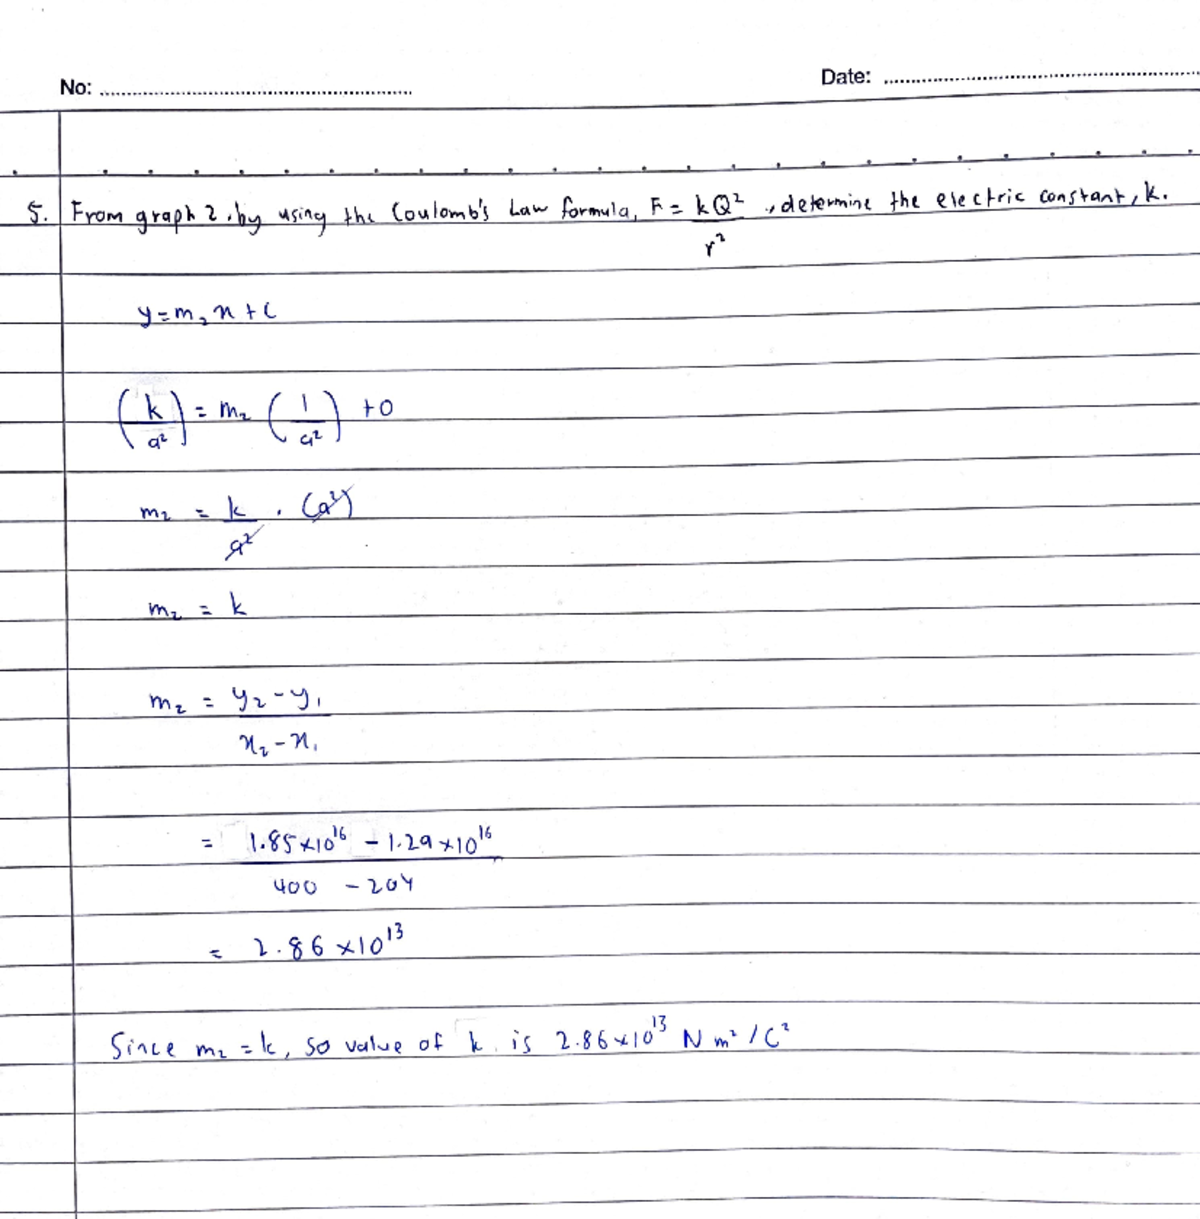 No: ........................................................
Date: ........................................................
5. From graph 2, by using the Coulomb's Law formula, F = kQ² / r², determine the electric constant, k.
y = m₂x + c
(k / a²) = m₂ (1 / a²) + 0
m₂ = k / a² . (a²)
m₂ = k
m₂ = y₂ - y₁ / x₂ - x₁
= 1.85 x10¹⁶ - 1.29 x10¹⁶ / 400 - 204
= 2.86 x10¹³
Since m₂ = k, so value of k is 2.86 x10¹³ N m² / C²